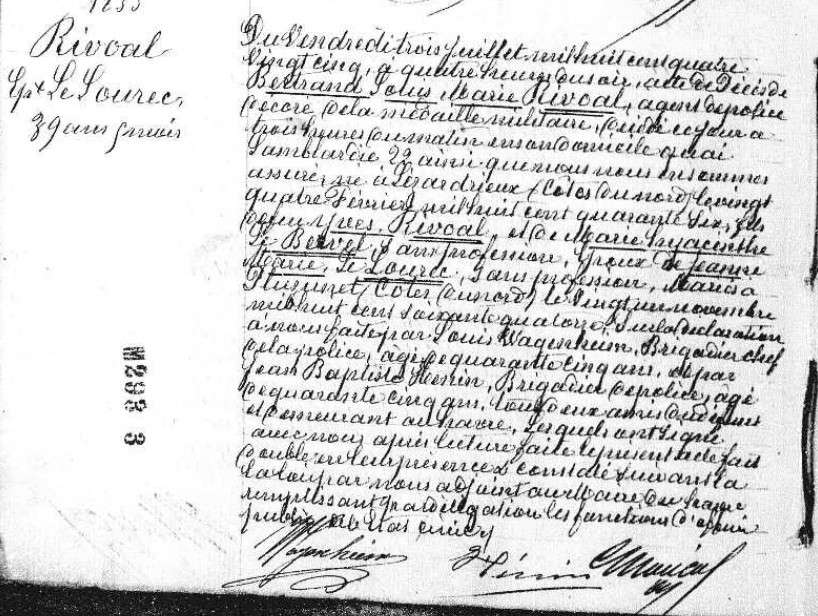 1233
Rivoal
Ep. Le Lourec,
39 ans 5 mois
Du Vendredi trois Juillet mil huit cent quatre
vingt cinq, à quatre heures du soir, acte de Décès de
Bertrand Louis Marie Rivoal, agent de police
décoré de la médaille militaire, décédé ce jour à
trois heures du matin en son domicile quai
Lamblardie 22 ainsi que nous nous en sommes
assuré, né à Lézardrieux (Côtes du nord) le vingt
quatre Février mil huit cent quarante six, fils
de feu Yves Rivoal, et de Marie hyacinthe
Le Bervet, sans profession, époux de Jeanne
Marie Le Lourec, sans profession, Mariés à
Pluzunet (Côtes du nord) le vingt un novembre
mil huit cent soixante quatorze, Sur la déclaration
à nous faite par Louis Wagenheim, Brigadier chef
de la police, âgé de quarante cinq ans, et par
Jean Baptiste Hénin, Brigadier de police, âgé
de quarante cinq ans, tous deux amis du défunt
et demeurant au havre, Lesquels ont signé
avec nous après lecture faite le présent acte fait
double en leur présence et constaté suivant la
la loi par nous adjoint au Maire du havre
remplissant par délégation les fonctions d'officier
public de l'état civil
Wagenheim
Hénin
M293 3